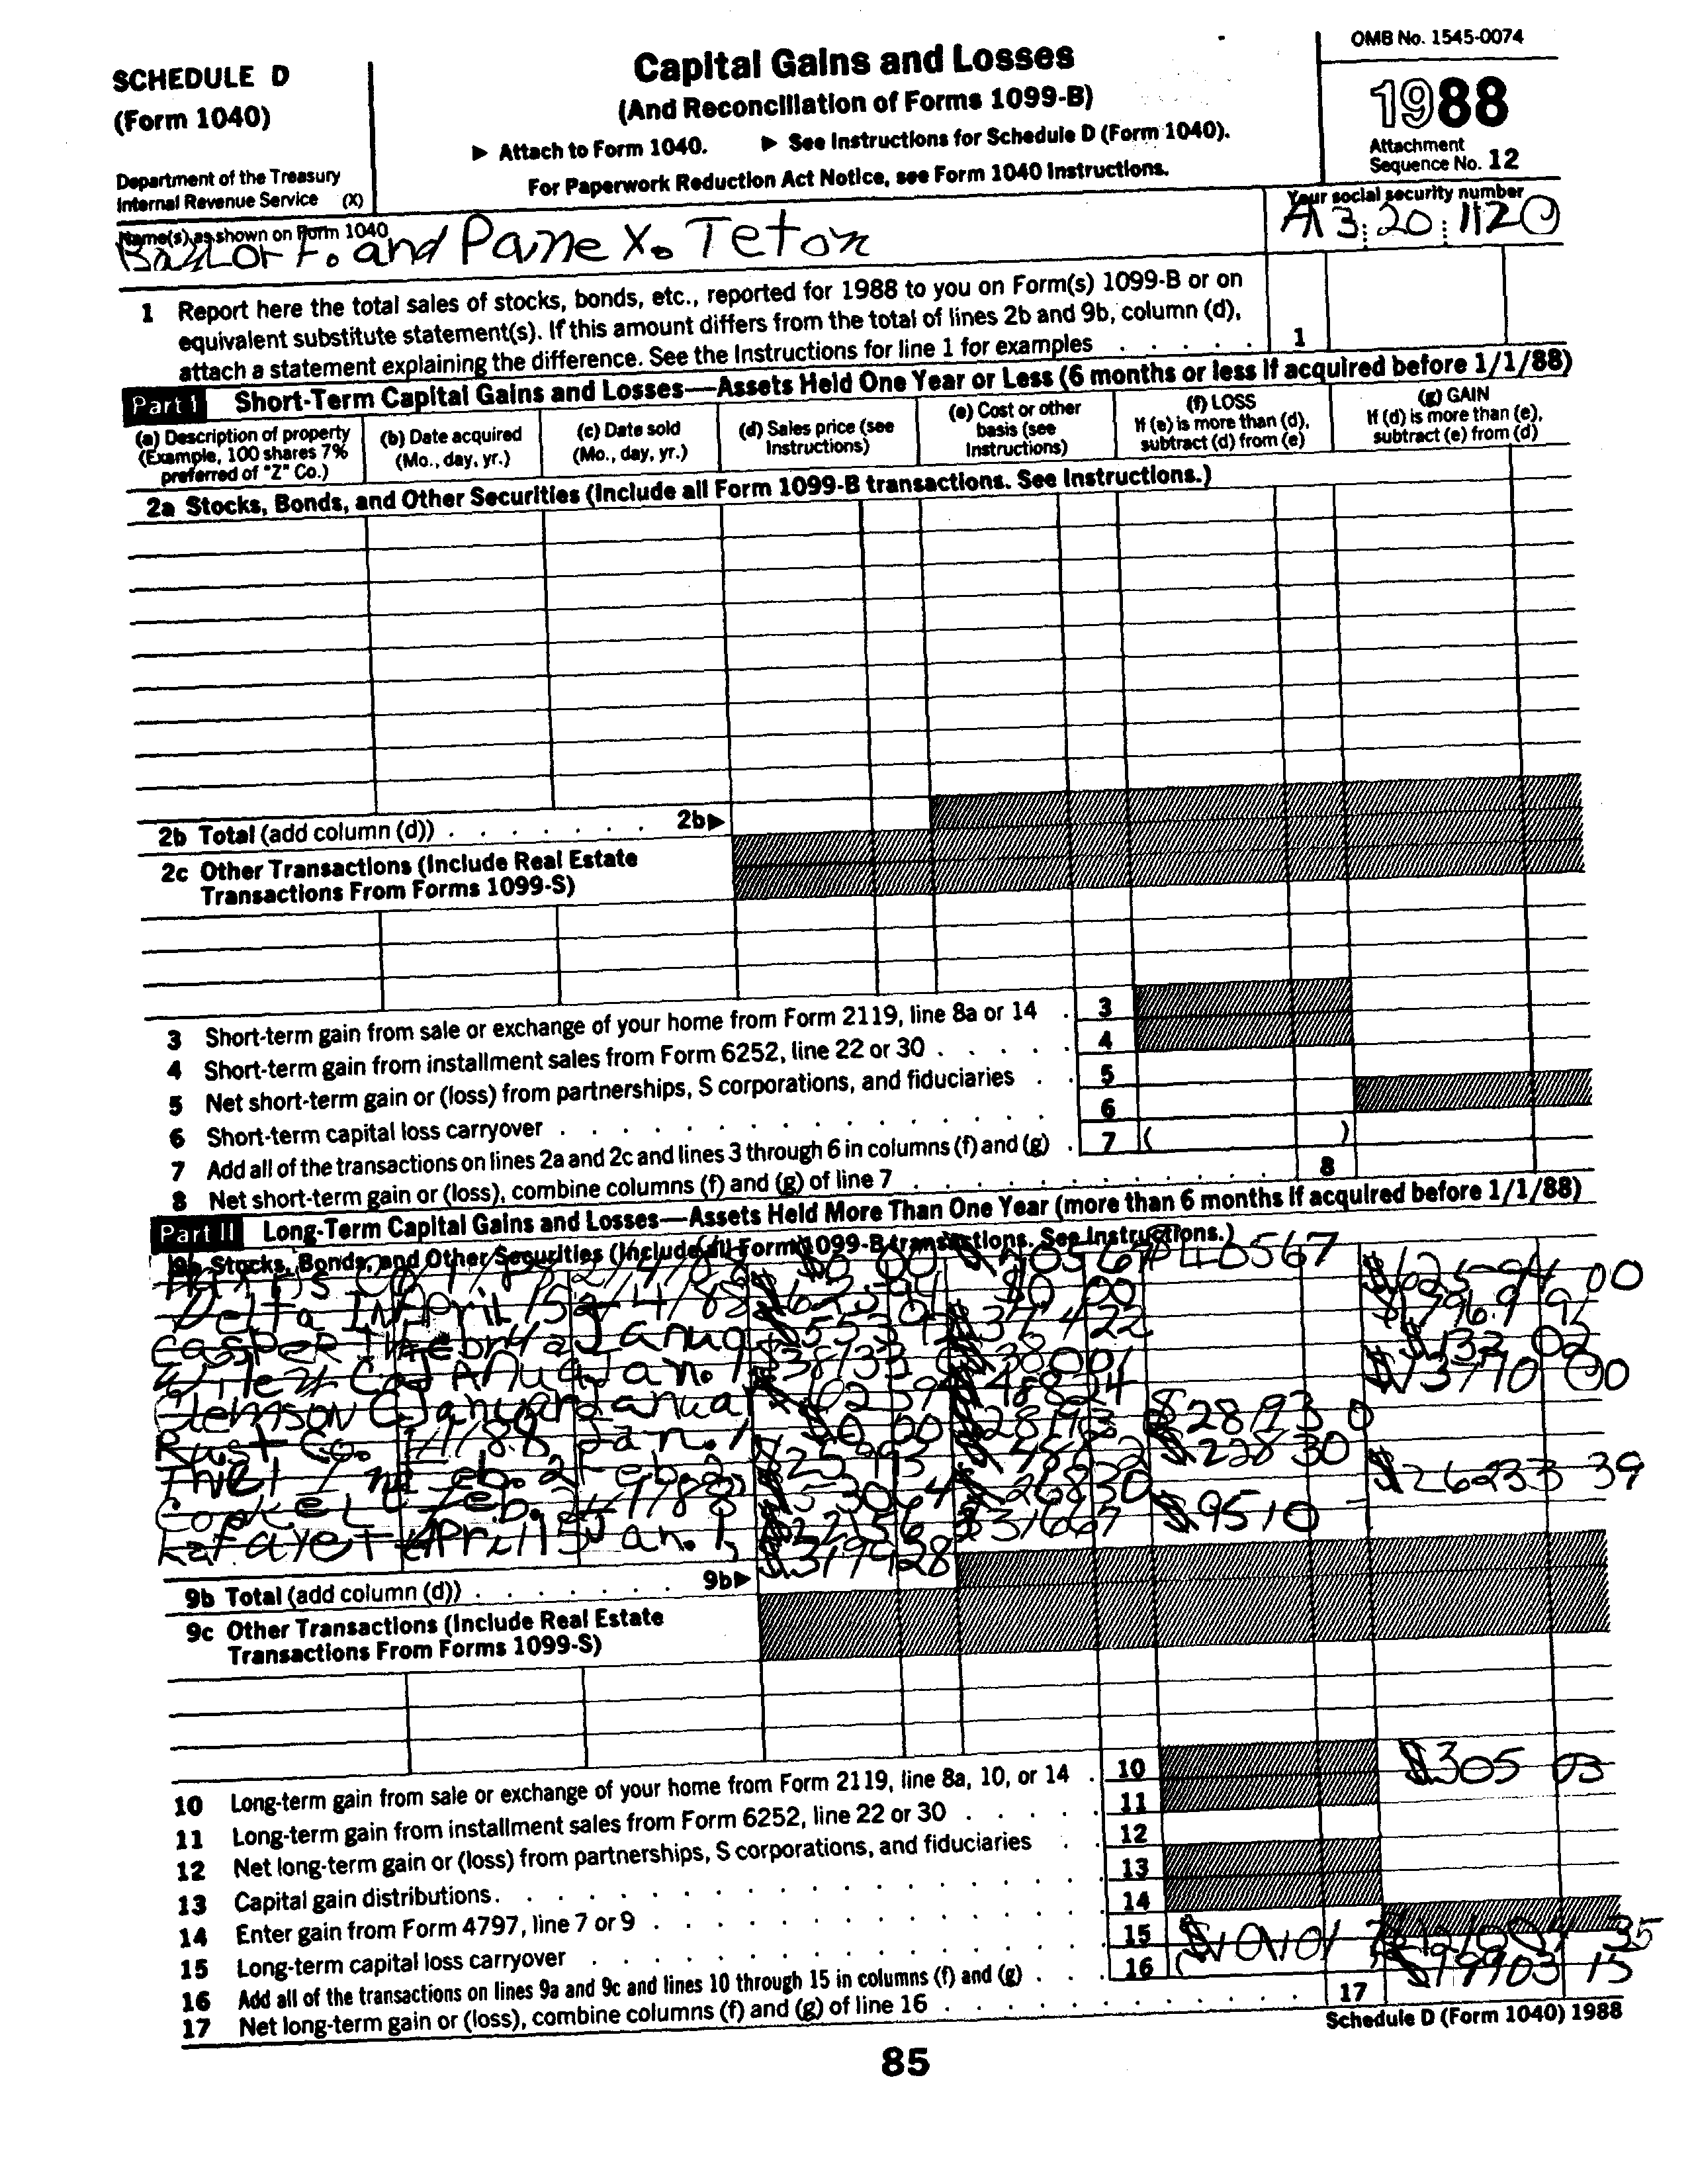 SCHEDULE D
(Form 1040)
Department of the Treasury
Internal Revenue Service (X)
Capital Gains and Losses
(And Reconciliation of Forms 1099-B)
▶ Attach to Form 1040. ▶ See Instructions for Schedule D (Form 1040).
For Paperwork Reduction Act Notice, see Form 1040 Instructions.
OMB No. 1545-0074
1988
Attachment
Sequence No. 12
Name(s) as shown on Form 1040
F. and Pane X. Teton
Your social security number
20 1120
1 Report here the total sales of stocks, bonds, etc., reported for 1988 to you on Form(s) 1099-B or on
equivalent substitute statement(s). If this amount differs from the total of lines 2b and 9b, column (d),
attach a statement explaining the difference. See the Instructions for line 1 for examples . . . . . 1
Part I Short-Term Capital Gains and Losses—Assets Held One Year or Less (6 months or less if acquired before 1/1/88)
(a) Description of property
(Example, 100 shares 7%
preferred of "Z" Co.)
(b) Date acquired
(Mo., day, yr.)
(c) Date sold
(Mo., day, yr.)
(d) Sales price (see
Instructions)
(e) Cost or other
basis (see
Instructions)
(f) LOSS
If (e) is more than (d),
subtract (d) from (e)
(g) GAIN
If (d) is more than (e),
subtract (e) from (d)
2a Stocks, Bonds, and Other Securities (Include all Form 1099-B transactions. See Instructions.)
2b Total (add column (d)) . . . . . . . 2b▶
2c Other Transactions (Include Real Estate
Transactions From Forms 1099-S)
3 Short-term gain from sale or exchange of your home from Form 2119, line 8a or 14 . 3
4 Short-term gain from installment sales from Form 6252, line 22 or 30 . . . . 4
5 Net short-term gain or (loss) from partnerships, S corporations, and fiduciaries . . 5
6 Short-term capital loss carryover . . . . . . . . . . . . . . 6
7 Add all of the transactions on lines 2a and 2c and lines 3 through 6 in columns (f) and (g) . 7 ( )
8 Net short-term gain or (loss), combine columns (f) and (g) of line 7 . . . . . . . . . . . 8
Part II Long-Term Capital Gains and Losses—Assets Held More Than One Year (more than 6 months if acquired before 1/1/88)
9a Stocks, Bonds, and Other Securities (Include all Form 1099-B transactions. See Instructions.)
$0 00 $40567 $40567
Delta April 15 2/4/88 $62594 $0 00 $62594 00
CASPER $37422
Jan. 1 $38133 $38001 $132 02
Clemson $48834 $13770 00
Rust Co. 1/1/88 Jan. 1 $0 00 $28193 $28193 0
Feb. 2 $25993 $22830
Feb. 4/1/88 $53064 $26830 $26233 39
April 15 Jan. 1, $22156 $31667 $9510
9b Total (add column (d)) . . . . . . . 9b▶ $319928
9c Other Transactions (Include Real Estate
Transactions From Forms 1099-S)
10 Long-term gain from sale or exchange of your home from Form 2119, line 8a, 10, or 14 . 10 $305 03
11 Long-term gain from installment sales from Form 6252, line 22 or 30 . . . . . 11
12 Net long-term gain or (loss) from partnerships, S corporations, and fiduciaries . . 12
13 Capital gain distributions . . . . . . . . . . . . . . . . . 13
14 Enter gain from Form 4797, line 7 or 9 . . . . . . . . . . . . . 14
15 Long-term capital loss carryover . . . . . . . . . . . . . . . 15
16 Add all of the transactions on lines 9a and 9c and lines 10 through 15 in columns (f) and (g) . . . 16 35
17 Net long-term gain or (loss), combine columns (f) and (g) of line 16 . . . . . . . . . . . 17 $19903 15
Schedule D (Form 1040) 1988
85